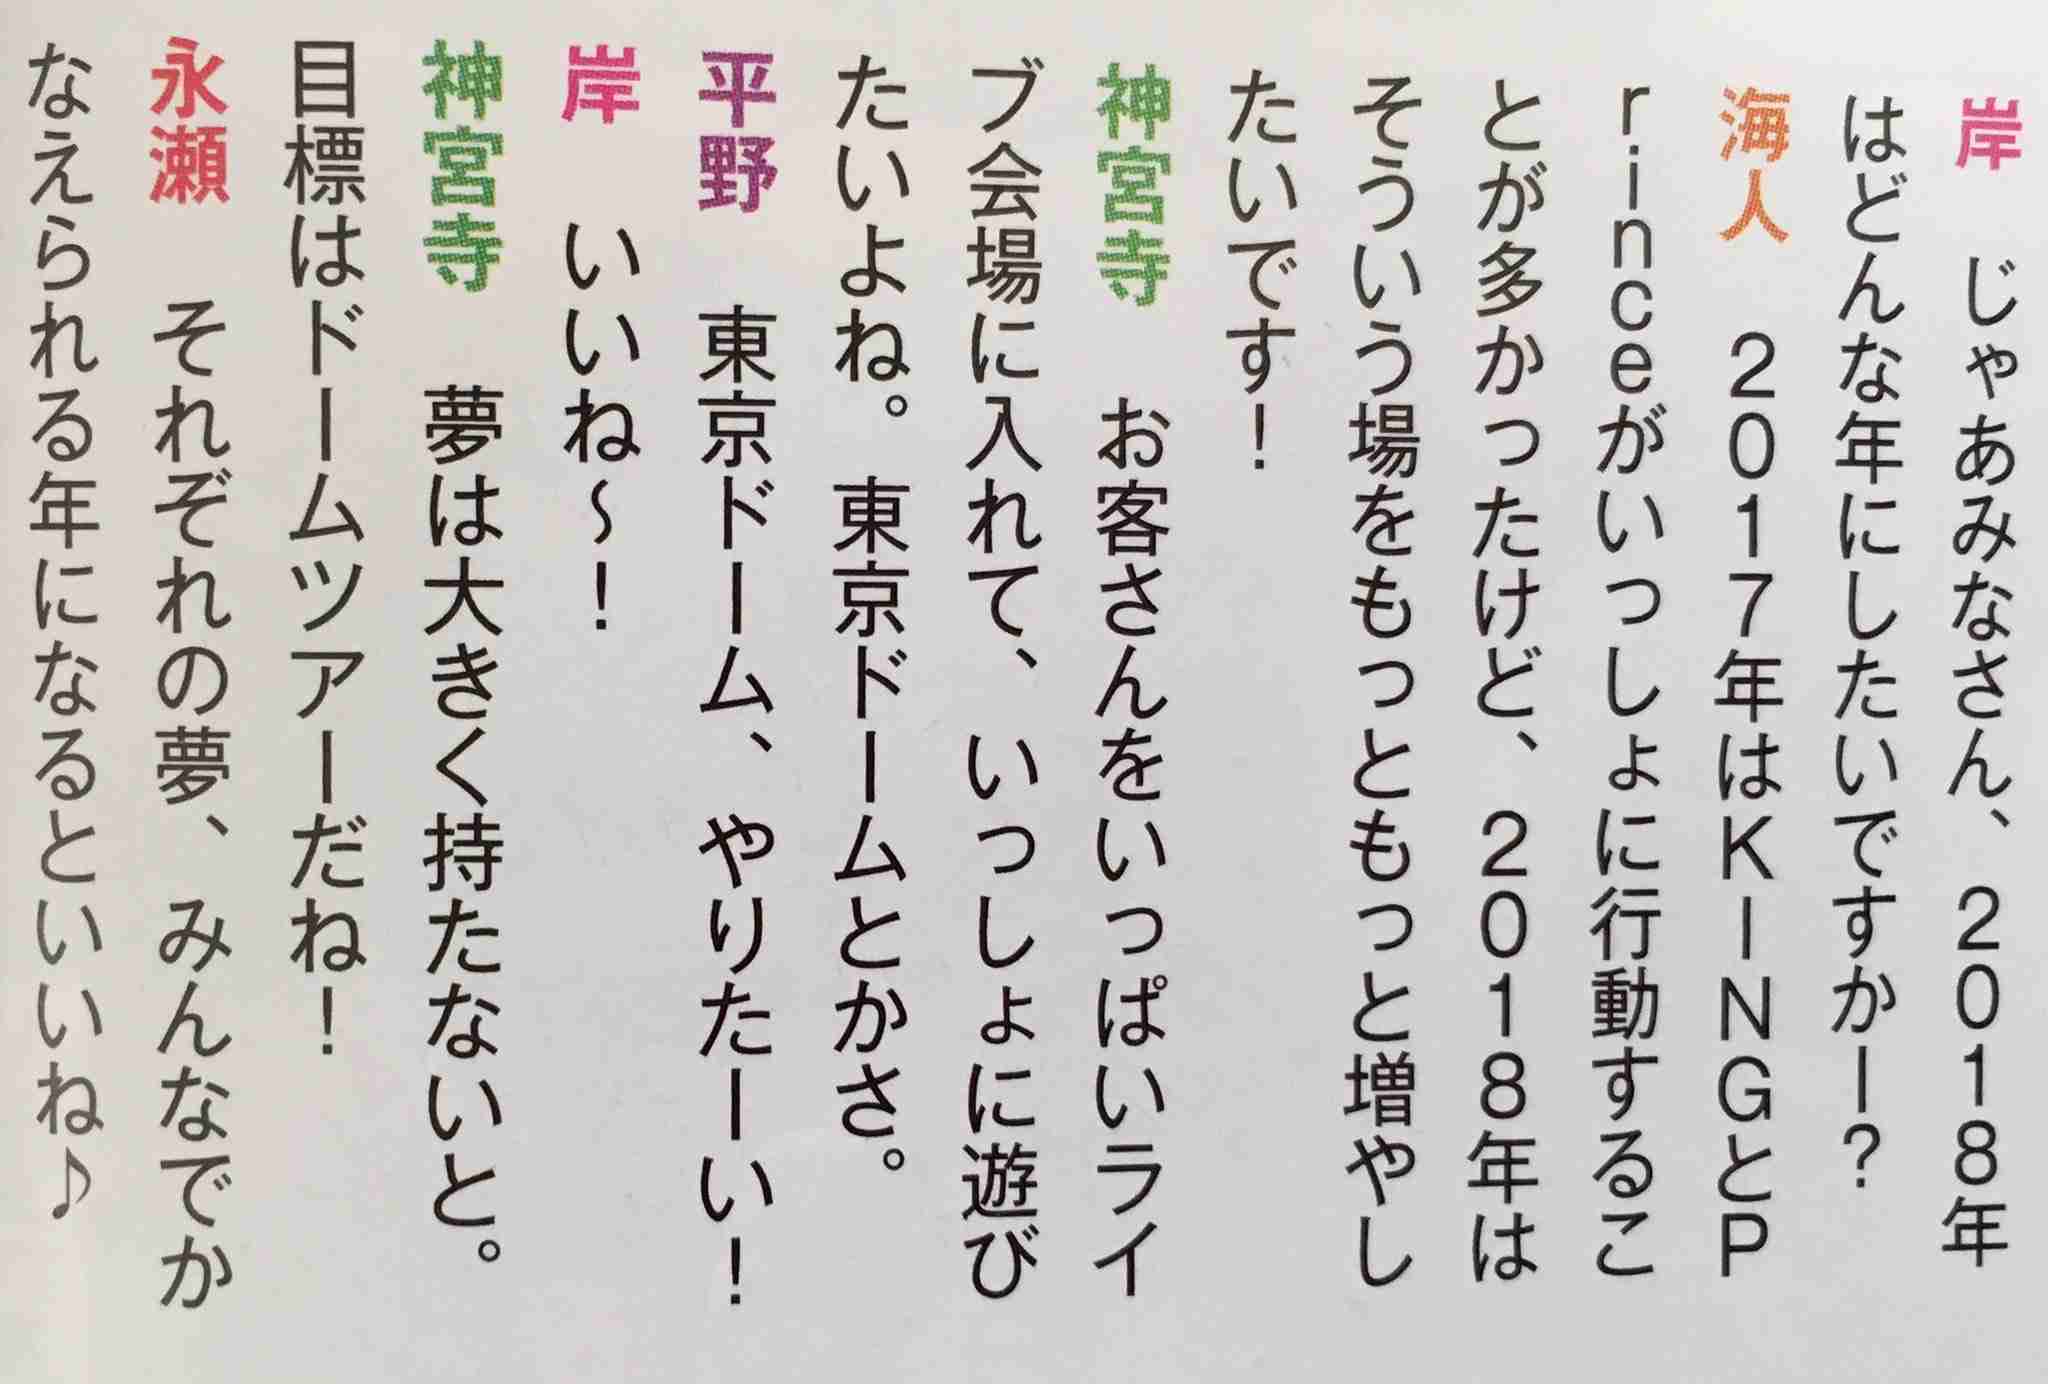 岸　じゃあみなさん、2018年
はどんな年にしたいですかー?
海人　2017年はKINGとP
rinceがいっしょに行動するこ
とが多かったけど、2018年は
そういう場をもっともっと増やし
たいです!
神宮寺　お客さんをいっぱいライ
ブ会場に入れて、いっしょに遊び
たいよね。東京ドームとかさ。
平野　東京ドーム、やりたーい!
岸　いいね〜!
神宮寺　夢は大きく持たないと。
目標はドームツアーだね!
永瀬　それぞれの夢、みんなでか
なえられる年になるといいね♪